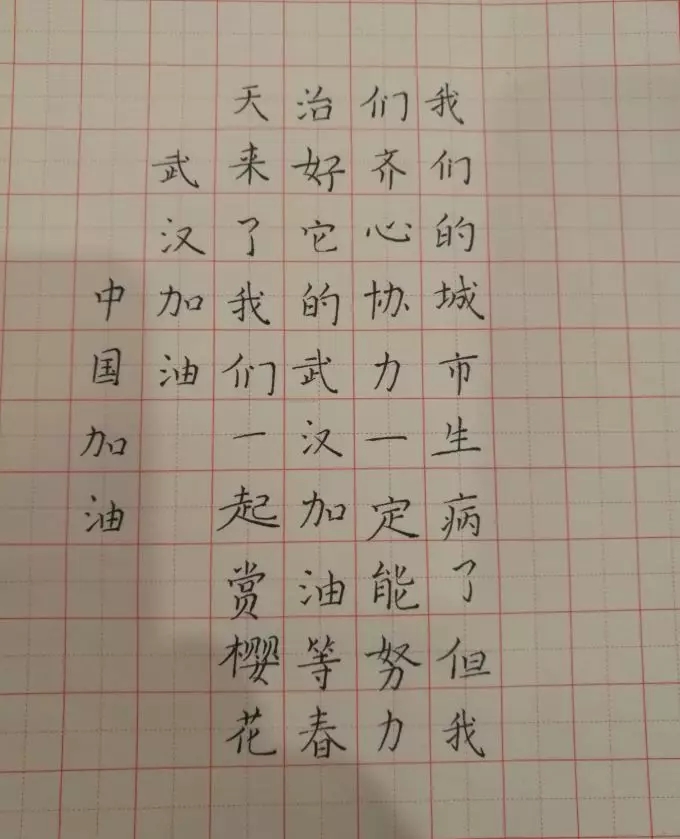 我们的城市生病了但我
们齐心协力一定能努力
治好它的武汉加油等春
天来了我们一起赏樱花
武汉加油
中国加油